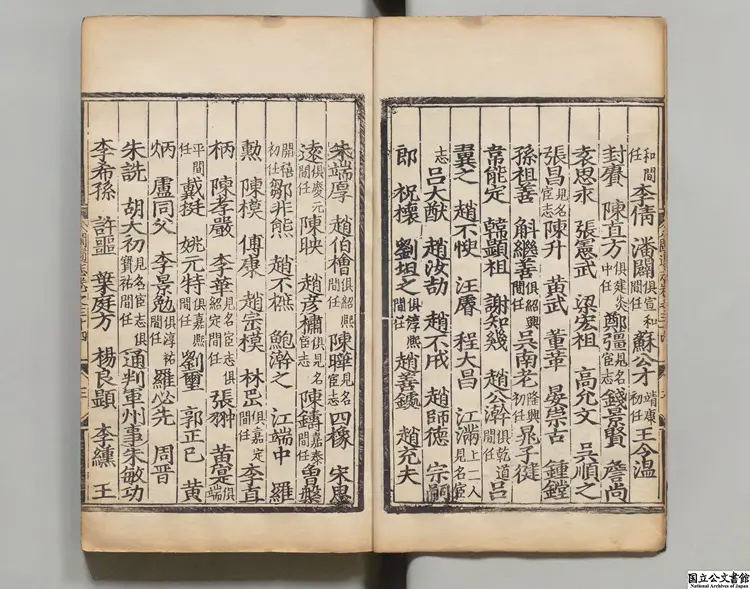 和間任李倩潘闢俱宣和間任蘇公才靖康初任王令溫
封賚陳直方俱建炎中任鄭彊見名宦志錢景賓詹尚
袁思永張憲武梁宏祖高允文吳順之
張昌見名宦志陳升黃武董葦晏崇古鍾鏜
孫祖善斛繼善俱紹興間任吳南老隆興初任晁子健
常能定韓顯祖謝知幾趙公澣俱乾道間任呂
翼之趙不悛汪㢘程大昌江溥上二人見名宦
志呂大猷趙汝劼趙不戍趙師德宗嗣
郎祝櫰劉坦之俱淳熙間任趙善鐻趙充夫
朱端厚趙伯檜俱紹熙間任陳曄見名宦志四橡宋思
遠俱慶元間任陳映趙彥橚俱見名宦志陳鑄嘉泰間任曾槃
開禧初任鄒非熊趙不㯠鮑澣之江端中羅
勲陳模傅康趙宗模林岊俱嘉定間任李直
柄陳孝嚴李華見名宦志俱紹定間任張翀黃㝎俱端
平間任戴挺姚元特俱嘉熙間任劉璽郭正巳黃
炳盧同父李景勉俱淳祐間任羅必先周晉
朱詵胡大初見名宦志俱寶祐間任通判軍州事朱敏功
李希孫許噩葉庭方楊良顯李纁王
国立公文書館
National Archives of Japan